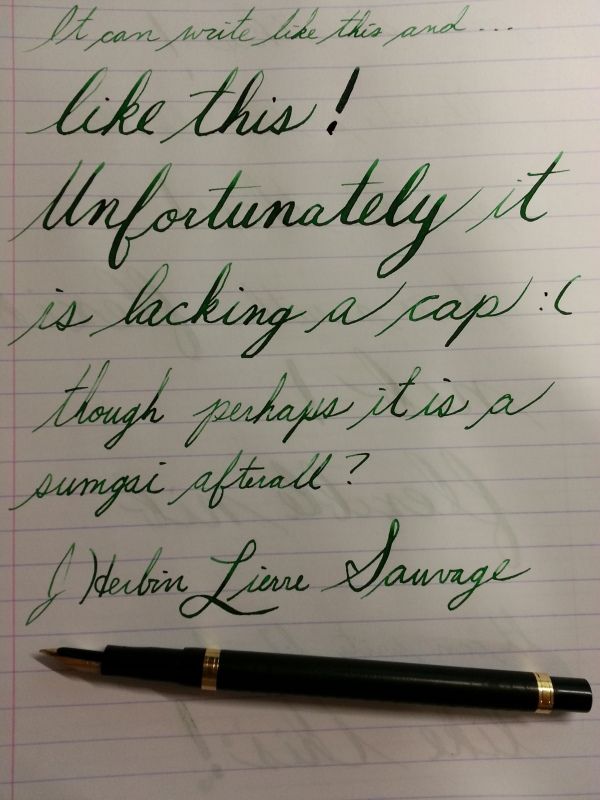 It can write like this and...
like this!
Unfortunately it
is lacking a cap :(
though perhaps it is a
sumgai afterall?
J Herbin Lierre Sauvage